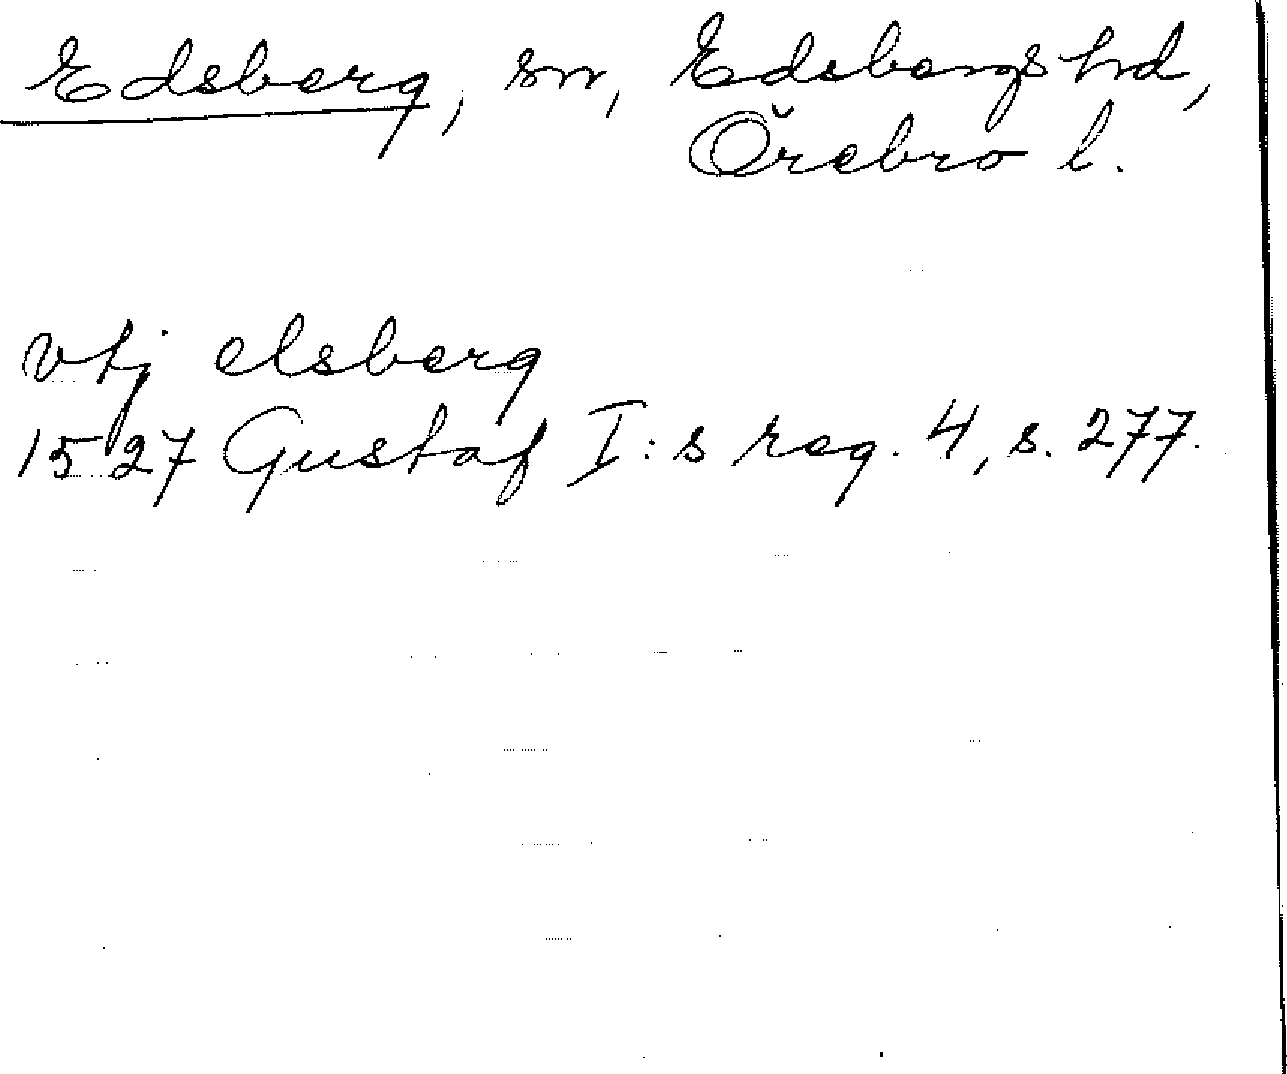 Edsberg, sn, Edsbergs hd,
Örebro l.
vtj elsberg
1527 Gustaf I:s reg. 4, s. 277.